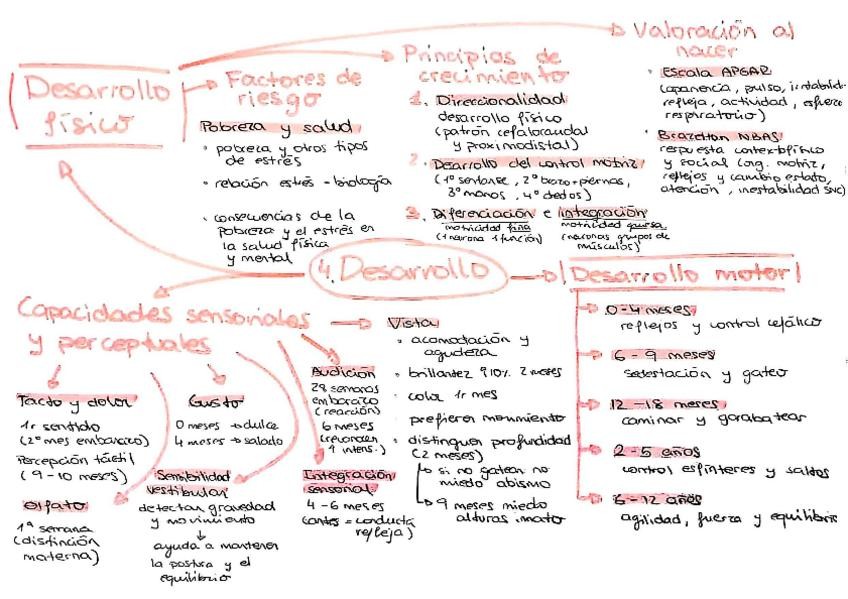 4. Desarrollo
Desarrollo
físico
Factores de
riesgo
Pobreza y salud
• pobreza y otros tipos
de estrés
• relación estrés - biología
• consecuencias de la
pobreza y el estrés en
la salud física
y mental
Principios de
crecimiento
1. Direccionalidad
desarrollo físico
(patrón cefalocaudal
y proximodistal)
2. Desarrollo del control motriz
(1º sentarse, 2º brazo+piernas,
3º manos, 4º dedos)
3. Diferenciación e integración
motricidad fina
(1 neurona 1 función)
motricidad gruesa
(neuronas grupos de
músculos)
Valoración al
nacer
• Escala APGAR
(apariencia, pulso, irritabilid.
refleja, actividad, esfuerzo
respiratorio)
• Brazelton NBAS
respuesta context. físico
y social (org. motriz,
reflejos y cambio estado,
atención, inestabilidad SNC)
Desarrollo motor
0-4 meses
reflejos y control cefálico
6 - 9 meses
sedestación y gateo
12 - 18 meses
caminar y garabatear
2-5 años
control esfínteres y saltos
6-12 años
agilidad, fuerza y equilibrio
Capacidades sensoriales
y perceptuales
Tacto y dolor
1r sentido
(2º mes embarazo)
Percepción táctil
(9-10 meses)
Olfato
1ª semana
(distinción
materna)
Gusto
0 meses → dulce
4 meses → salado
Sensibilidad
vestibular
detectan gravedad
y movimiento
↓
ayuda a mantener
la postura y el
equilibrio
Audición
28 semanas
embarazo
(reacción)
6 meses
Integración
sensorial
4 - 6 meses
(antes = conducta
refleja)
Vista
• acomodación y
agudeza
• brillantez 90% 2 meses
• color 1r mes
• prefieren movimiento
• distinguen profundidad
(2 meses)
↳ si no gatean no
miedo abismo
↳ 9 meses miedo
alturas innato